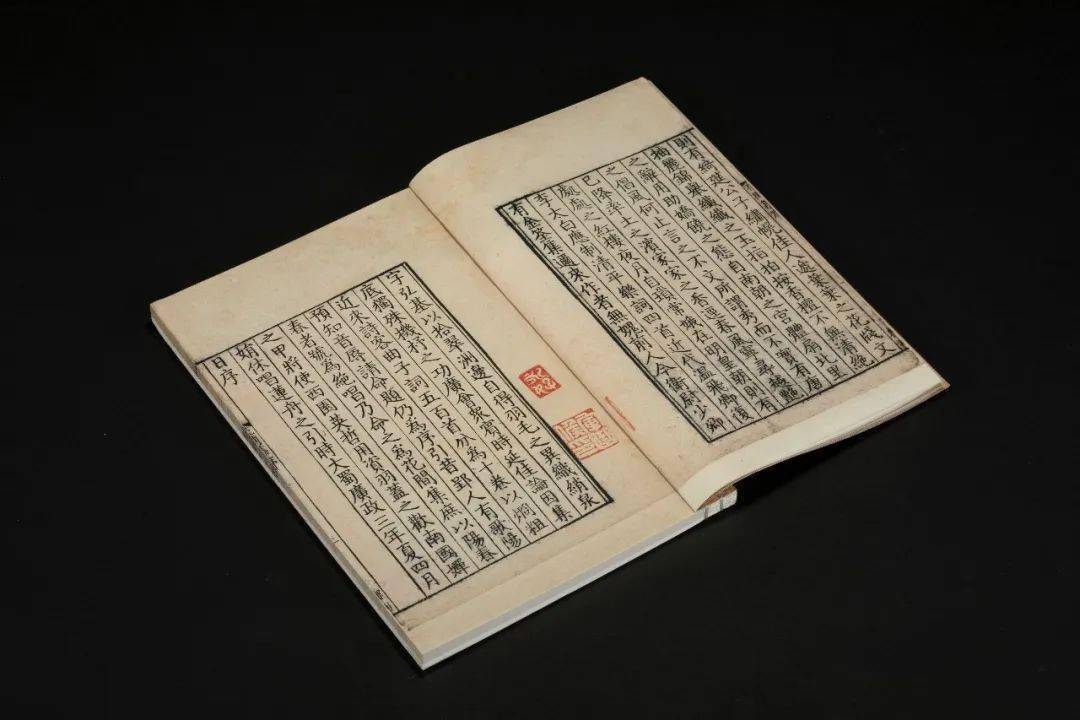 則有綺筵公子繡幌佳人遞葉葉之花牋文
抽麗錦舉纖纖之玉指拍按香檀不無清絕
之辭用助嬌嬈之態自南朝之宮體扇北里
之倡風何止言之不文所謂秀而不實有唐
已降率土之濱家家之香逕春風寧尋越豔
處處之紅樓夜月自鎖常娥在明皇朝則有
李太白應制清平樂詞四首近代溫飛卿復
有金荃集邇來作者無媿前人今衛尉少卿
字弘基以拾翠洲邊自得羽毛之異織綃泉
底獨殊機杼之功廣會眾賓時延佳論因集
近來詩客曲子詞五百首分為十卷以烱粗
預知音辱請命題仍為序引昔郢人有歌陽
春者號為絕唱乃命之為花間集庶以陽春
之甲將使西園英哲用資羽蓋之歡南國嬋
娟休唱蓮舟之引時大蜀廣政三年夏四月
日序